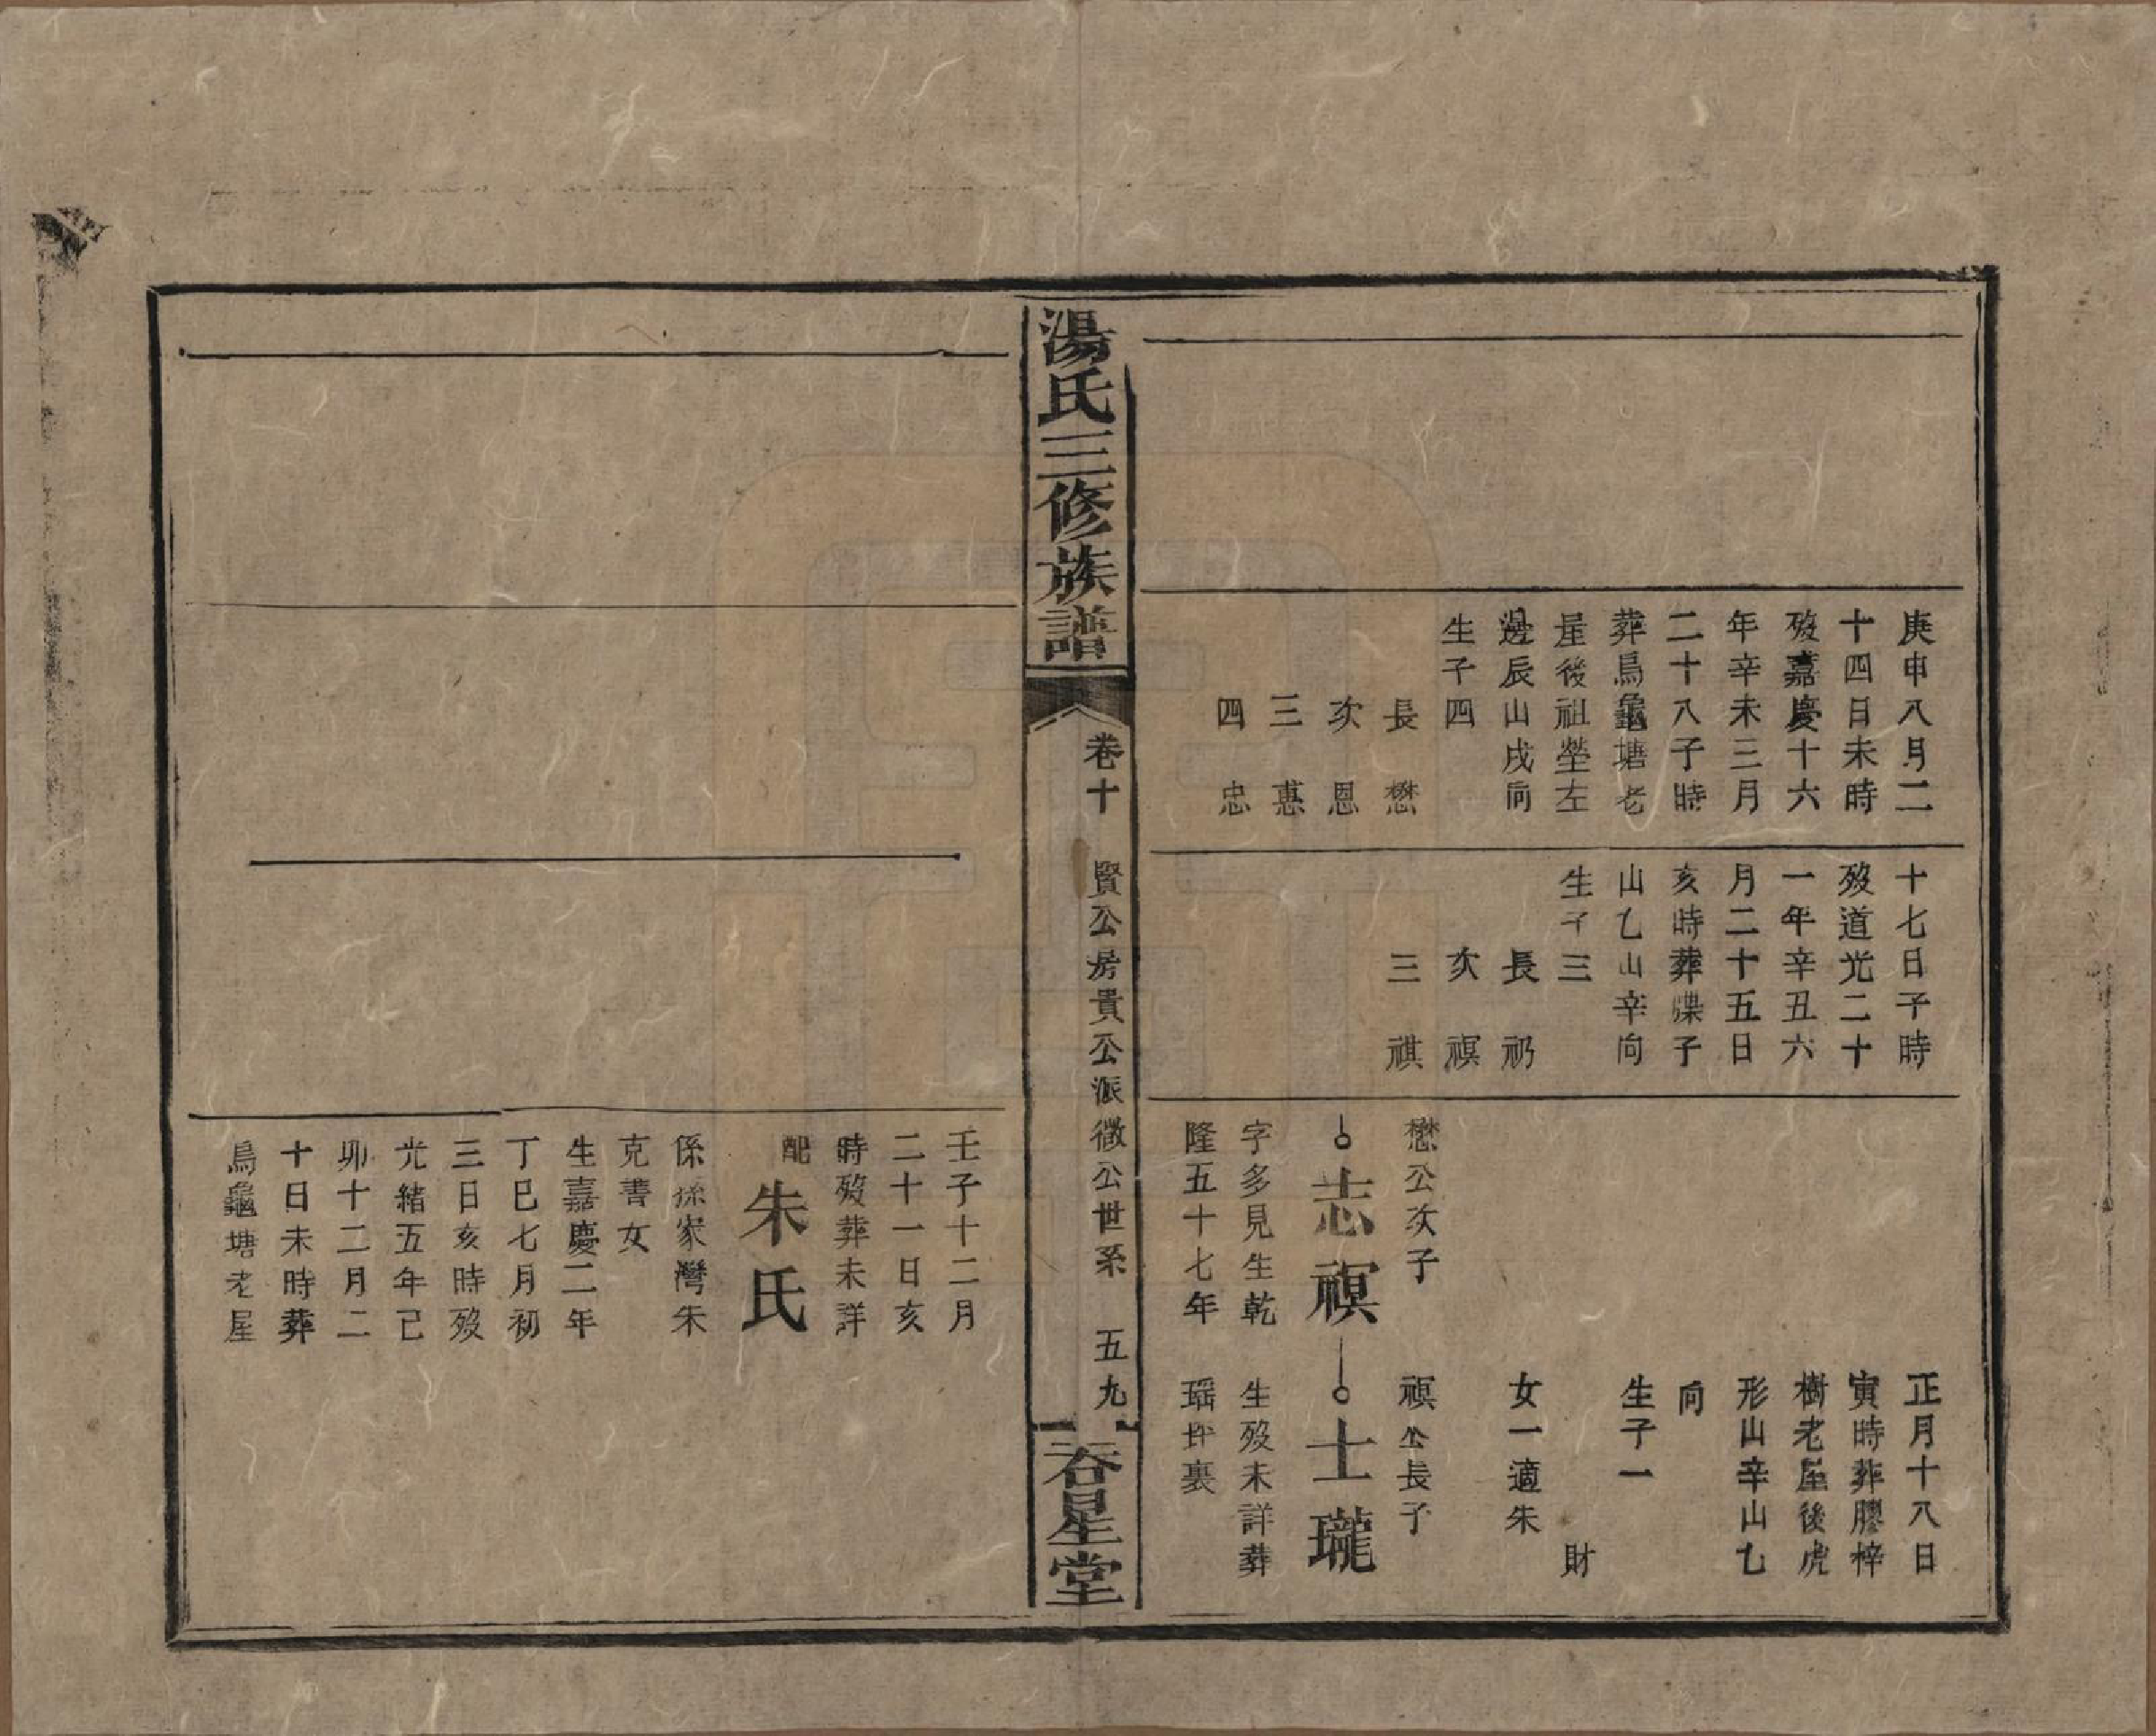 庚申八月二
十四日未時
歿嘉慶十六
年辛未三月
二十八子時
葬烏龜塘老
屋後祖塋左
邊辰山戌向
生子四
長 懋
次 恩
三 惠
四 忠
十七日子時
歿道光二十
一年辛丑六
月二十五日
亥時葬楪子
山乙山辛向
生子三
長 礽
次 祺
三 祺
正月十八日
寅時葬膠梓
樹老屋後虎
形山辛山乜
向
生子一
財
女一適朱
懋公次子
志禩
字多見生乾
隆五十七年
公長子
士瓏
生歿未詳葬
瑶坪裏
湯氏三修族譜
卷十
賢公房貴公派徵公世系
五九
吞星堂
壬子十二月
二十一日亥
時歿葬未詳
配朱氏
係孫家灣朱
克書女
生嘉慶二年
丁巳七月初
三日亥時歿
光緒五年己
卯十二月二
十日未時葬
烏龜塘老屋